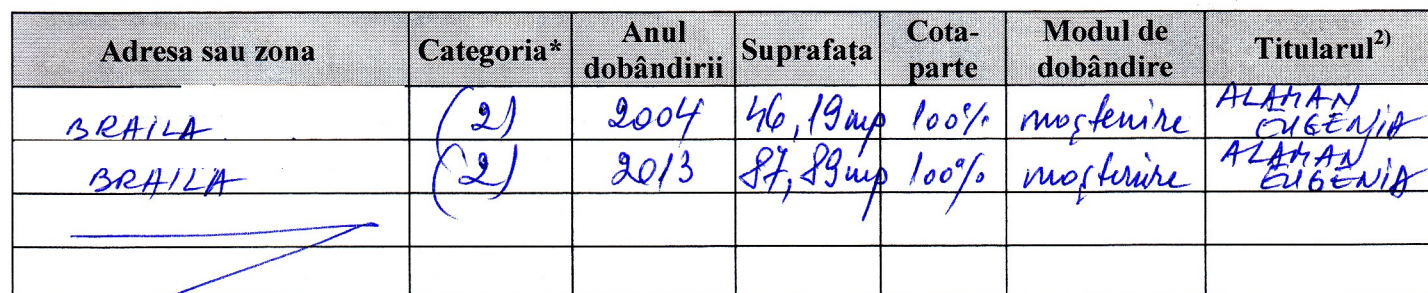 Adresa sau zona Categoria* Anul dobândirii Suprafața Cota-parte Modul de dobândire Titularul2)
BRAILA (2) 2004 46,19mp 100% moștenire ALAMAN EUGENIA
BRAILA (2) 2013 87,89mp 100% moștenire ALAMAN EUGENIA